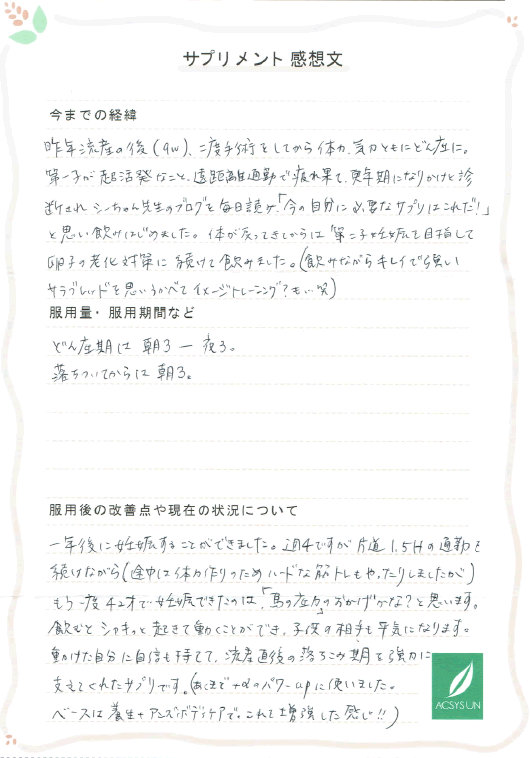 サプリメント 感想文
今までの経緯
昨年流産の後(9w)、二度手術をしてから体力、気力ともにどん底に。
第一子が超活発なこと、遠距離通勤で疲れ果て、更年期になりかけと診
断されシーちゃん先生のブログを毎日読み、「今の自分に必要なサプリはこれだ!」
と思い飲みはじめました。体が戻ってきてからは第二子妊娠を目指して
卵子の老化対策に続けて飲みました。(飲みながらキレイで強い
サラブレッドを思いうかべてイメージトレーニング?も 笑)
服用量・服用期間など
どん底期は 朝3 ー 夜3。
落ちついてからは 朝3。
服用後の改善点や現在の状況について
一年後に妊娠することができました。週4ですが片道1.5Hの通勤を
続けながら(途中は体力作りのためハードな筋トレもやったりしましたが)
もう一度42才で妊娠できたのは、「馬の底力」のおかげかな?と思います。
飲むとシャキっと起きて動くことができ、子供の相手も平気になります。
動けた自分に自信も持てて、流産直後の落ちこみ期を強力に
支えてくれたサプリです。(あくまで+αのパワーupに使いました。
ベースは養生+アンズボディケアで。これで増強した感じ!!)
ACSYSUN